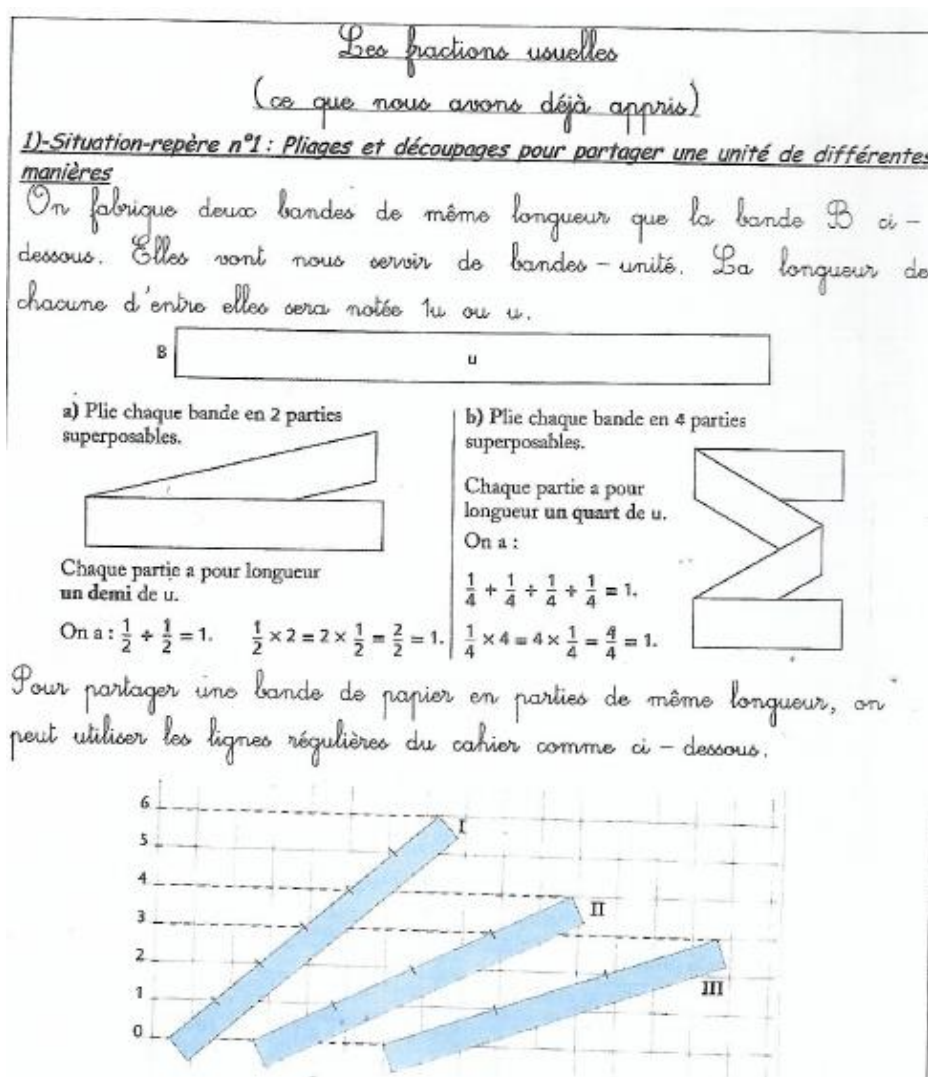 Les fractions usuelles
(ce que nous avons déjà appris)
1)-Situation-repère n°1 : Pliages et découpages pour partager une unité de différentes
manières
On fabrique deux bandes de même longueur que la bande B ci-
dessous. Elles vont nous servir de bandes-unité. La longueur de
chacune d'entre elles sera notée 1u ou u.
B
u
a) Plie chaque bande en 2 parties
superposables.
Chaque partie a pour longueur
un demi de u.
On a : 1/2 + 1/2 = 1. 1/2 × 2 = 2 × 1/2 = 2/2 = 1.
b) Plie chaque bande en 4 parties
superposables.
Chaque partie a pour
longueur un quart de u.
On a :
1/4 + 1/4 + 1/4 + 1/4 = 1.
1/4 × 4 = 4 × 1/4 = 4/4 = 1.
Pour partager une bande de papier en parties de même longueur, on
peut utiliser les lignes régulières du cahier comme ci-dessous.
6
5
4
3
2
1
0
I
II
III